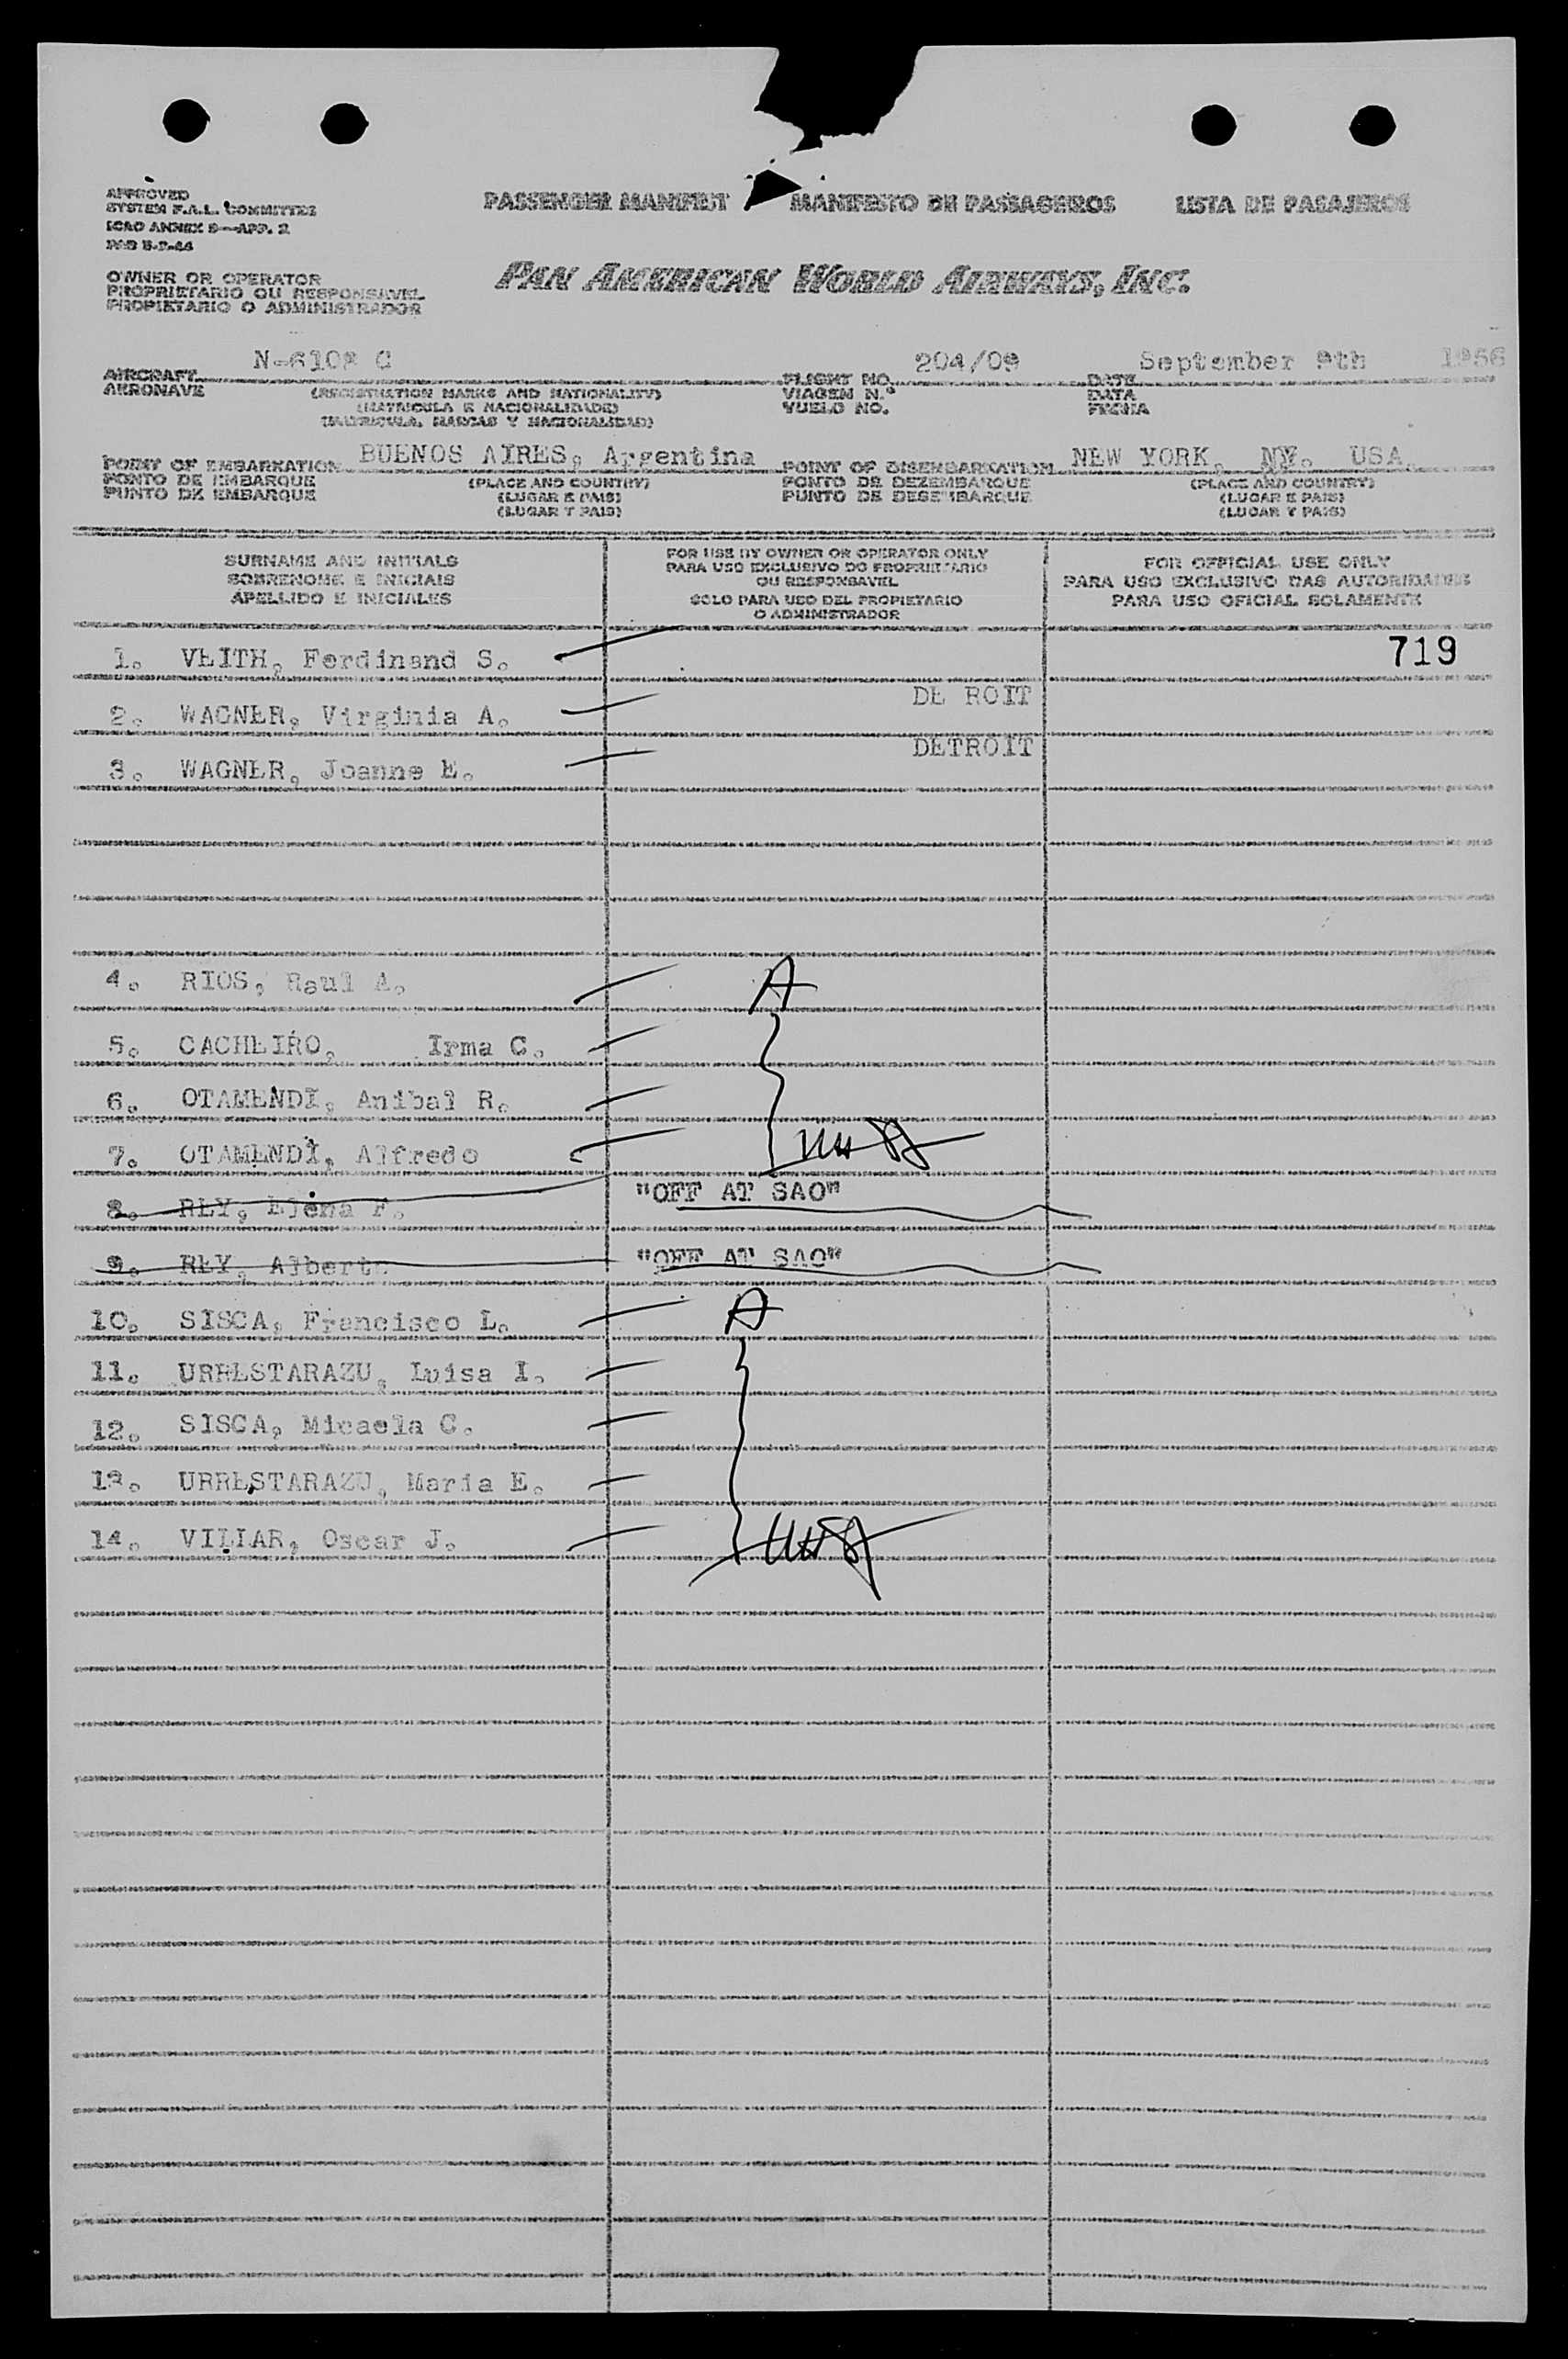 PASSENGER MANIFEST MANIFESTO DE PASSAGEIROS LISTA DE PASAJEROS
APPROVED
SYSTEM F.A.L. COMMITTEE
ICAO ANNEX 9—APP. 2
OWNER OR OPERATOR
PROPRIETARIO OU RESPONSAVEL
PROPIETARIO O ADMINISTRADOR
PAN AMERICAN WORLD AIRWAYS, INC.
AIRCRAFT N-6102 C FLIGHT NO. 204/09 DATE September 9th 1956
AERONAVE (REGISTRATION MARKS AND NATIONALITY) VIAGEM N.º DATA
(MATRICULA E NACIONALIDADE) VUELO NO. FECHA
(MATRICULA, MARCAS Y NACIONALIDAD)
POINT OF EMBARKATION BUENOS AIRES, Argentina POINT OF DISEMBARKATION NEW YORK, NY. USA.
PONTO DE EMBARQUE (PLACE AND COUNTRY) PONTO DE DEZEMBARQUE (PLACE AND COUNTRY)
PUNTO DE EMBARQUE (LUGAR E PAIS) PUNTO DE DESEMBARQUE (LUGAR E PAIS)
(LUGAR Y PAIS) (LUGAR Y PAIS)
SURNAME AND INITIALS
SOBRENOME E INICIAIS
APELLIDO E INICIALES
FOR USE BY OWNER OR OPERATOR ONLY
PARA USO EXCLUSIVO DO PROPRIETARIO
OU RESPONSAVEL
SOLO PARA USO DEL PROPIETARIO
O ADMINISTRADOR
FOR OFFICIAL USE ONLY
PARA USO EXCLUSIVO DAS AUTORIDADES
PARA USO OFICIAL SOLAMENTE
1. VEITH, Ferdinand S. 719
2. WAGNER, Virginia A. DE ROIT
3. WAGNER, Joanne E. DETROIT
4. RIOS, Raul A. A
5. CACHEIRO, Irma C.
6. OTAMENDI, Anibal R.
7. OTAMENDI, Alfredo
8. RLY, Elena F. "OFF AT SAO"
9. RLY, Alberto "OFF AT SAO"
10. SISCA, Francisco L. A
11. URRESTARAZU, Luisa I.
12. SISCA, Micaela C.
13. URRESTARAZU, Maria E.
14. VILIAR, Oscar J.